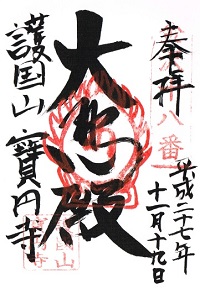 奉拝
八番
平成二十七年
十一月十九日
大悲殿
護国山
寶円寺